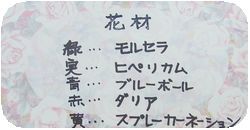 花材
緑… モルセラ
実… ヒペリカム
青… ブルーボール
赤… ダリア
黄… スプレーカーネーション